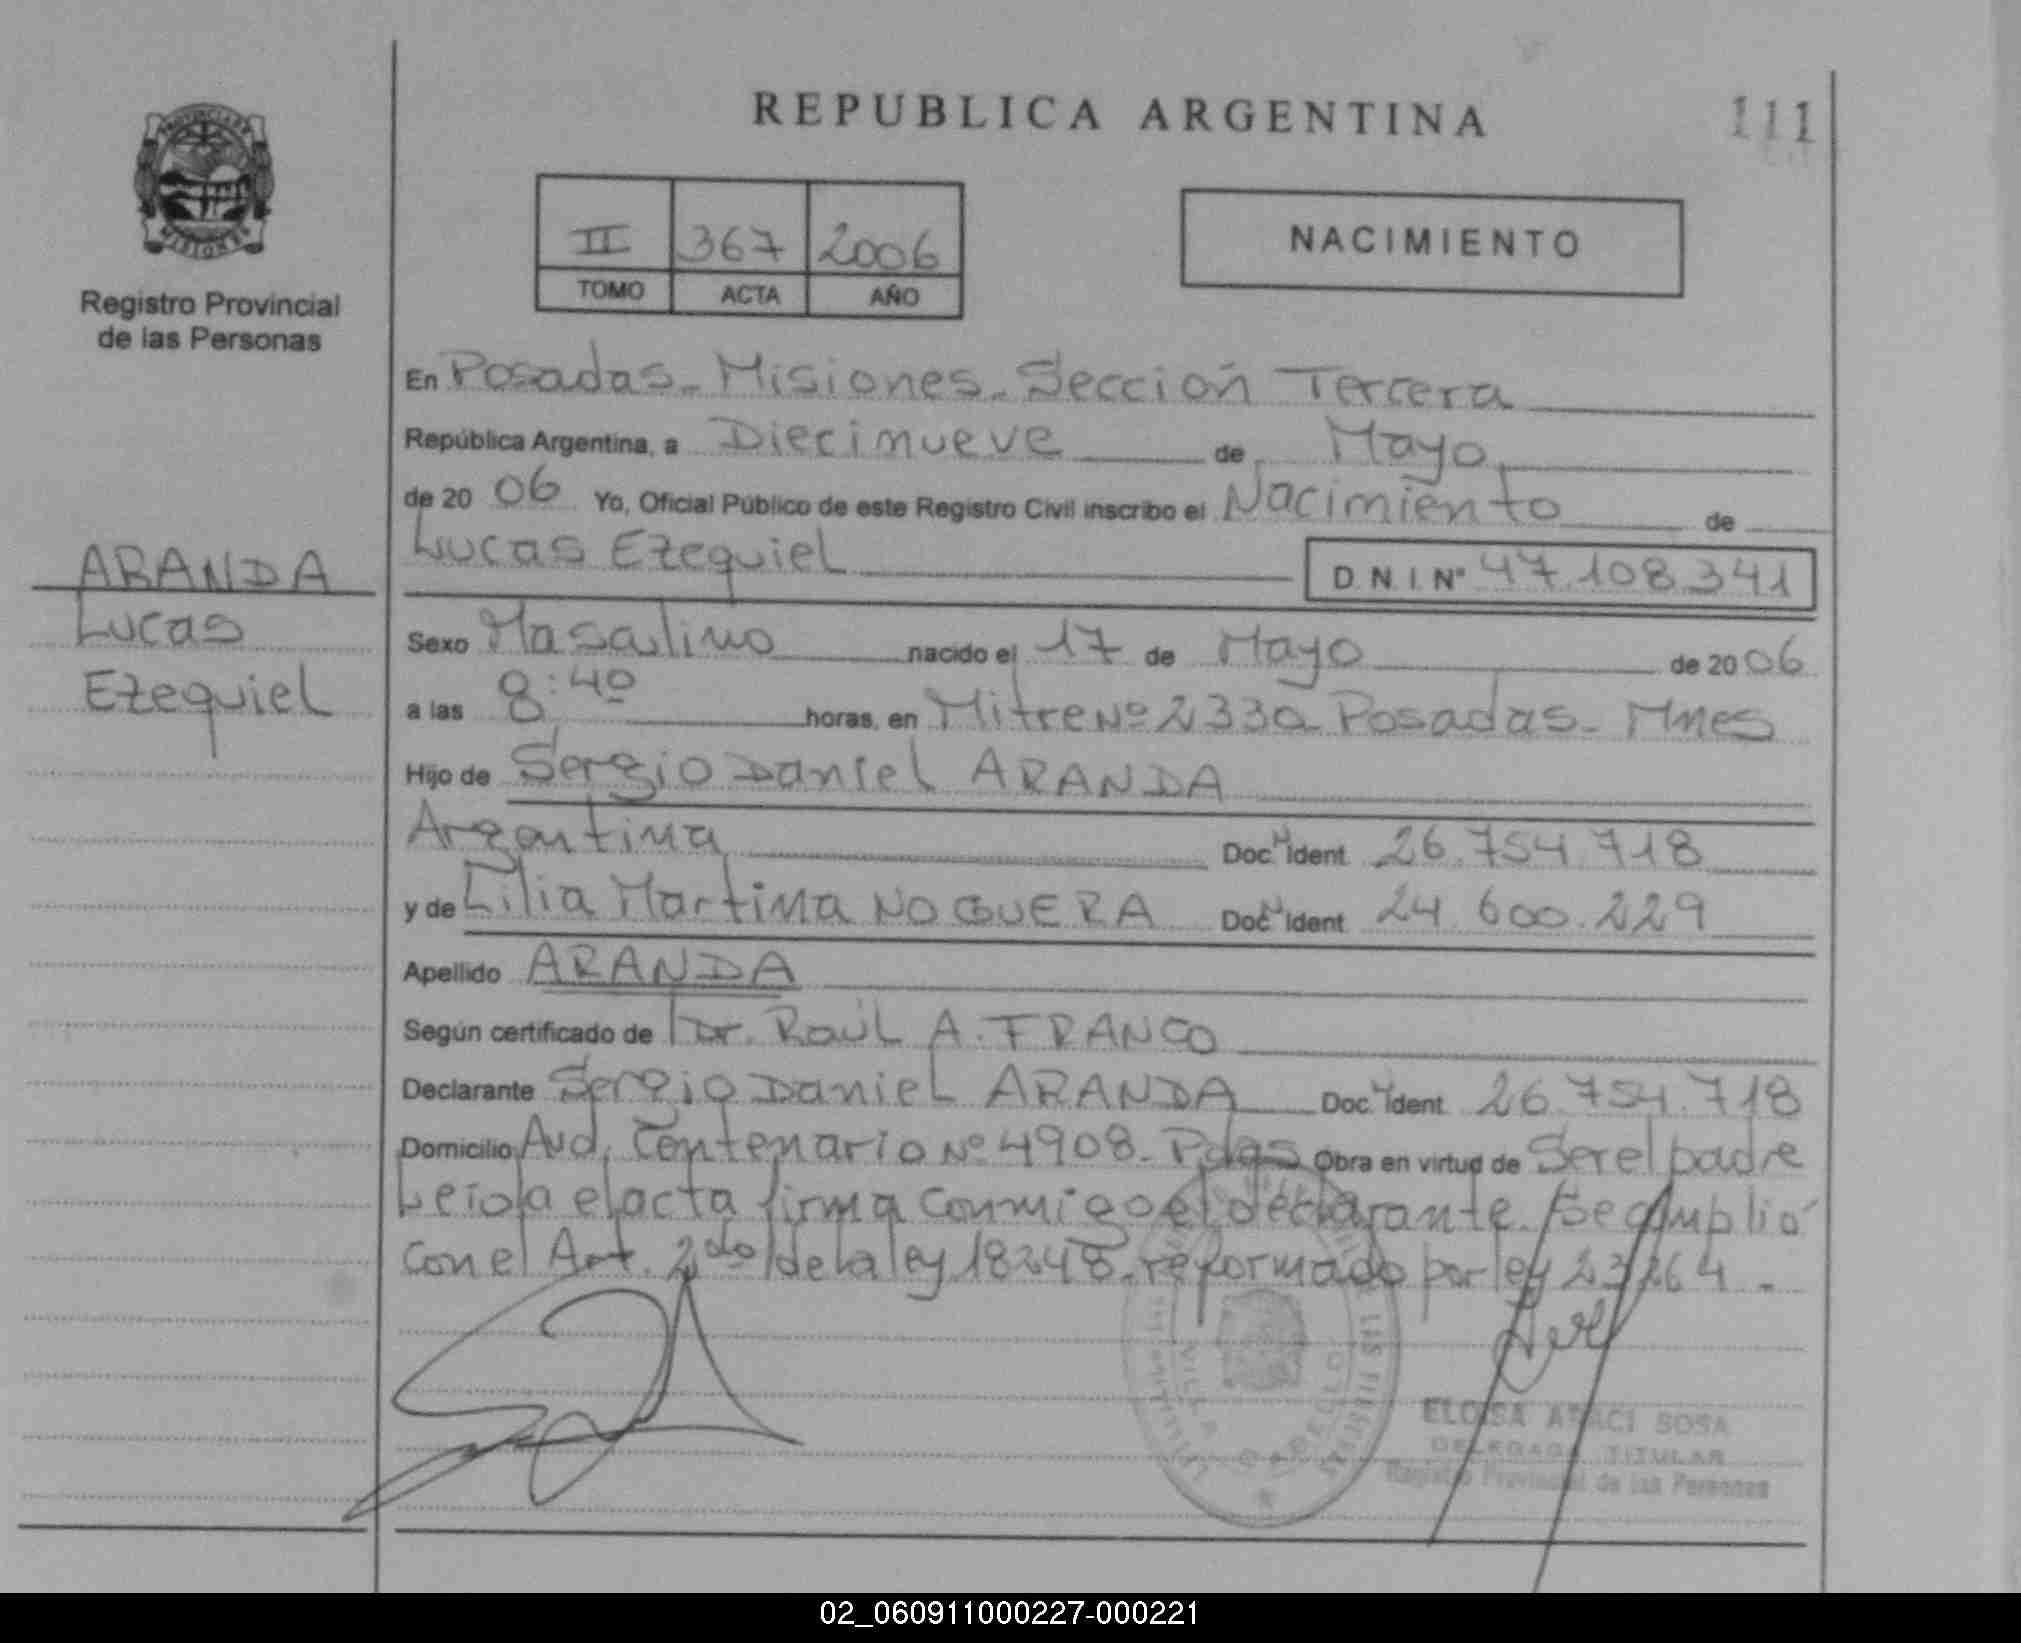 REPUBLICA ARGENTINA
111
PROVINCIA DE
MISIONES
Registro Provincial
de las Personas
II 367 2006
TOMO ACTA AÑO
NACIMIENTO
En Posadas - Misiones - Sección Tercera
República Argentina, a Diecinueve de Mayo
de 20 06 Yo, Oficial Público de este Registro Civil inscribo el Nacimiento de
Lucas Ezequiel D.N.I. Nº 47.108.341
ARANDA
Lucas
Ezequiel
Sexo Masculino nacido el 17 de Mayo de 20 06
a las 8:40 horas, en Mitre Nº 2330 Posadas - Mnes
Hijo de Sergio Daniel ARANDA
Argentina Doc. Ident. 26.754.718
y de Lilia Martina NOGUERA Doc. Ident. 24.600.229
Apellido ARANDA
Según certificado de Dr. Raúl A. FRANCO
Declarante Sergio Daniel ARANDA Doc. Ident. 26.754.718
Domicilio Avd. Centenario Nº 4908 - Pdas Obra en virtud de Ser el padre
Leida el acta firma conmigo el declarante. Se cumplió
con el Art. 2do de la ley 18248 - reformado por ley 23264 -
ELOISA ARACI SOSA
DELEGADA TITULAR
Registro Provincial de las Personas
02_060911000227-000221